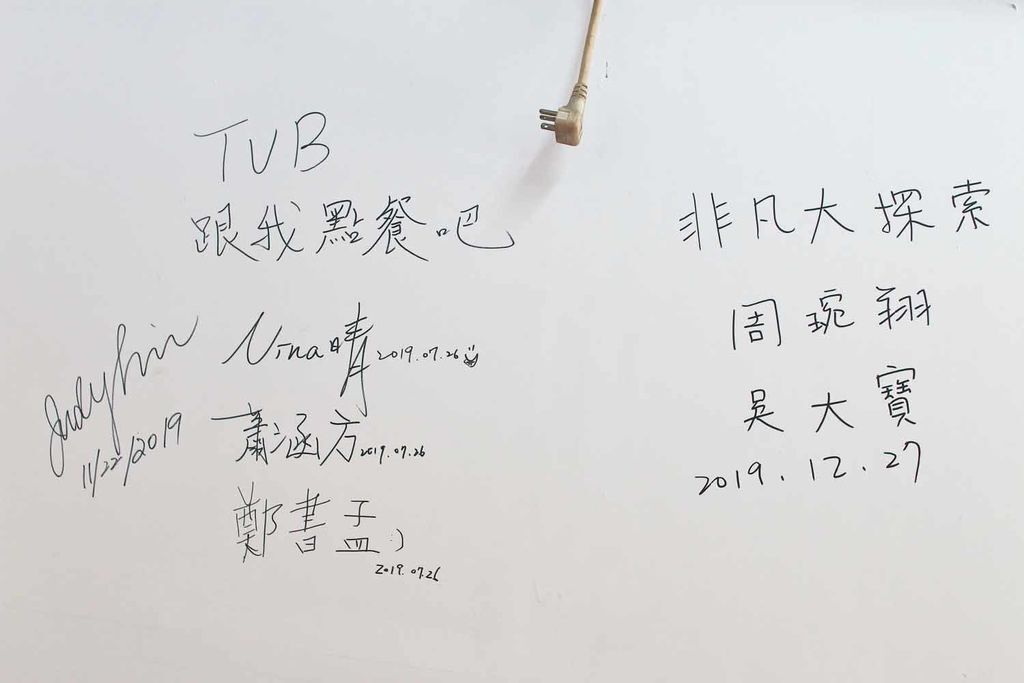 TVB
跟我點餐吧
Nina晴 2019.07.26
蕭涵方 2019.07.26
鄭書孟 :)
2019.07.26
Judy Lin
11/22/2019
非凡大探索
周琬翔
吳大寶
2019.12.27